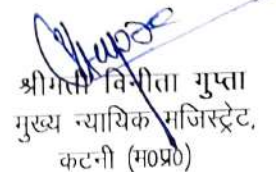 श्रीमती विनीता गुप्ता
मुख्य न्यायिक मजिस्ट्रेट,
कटनी (म0प्र0)